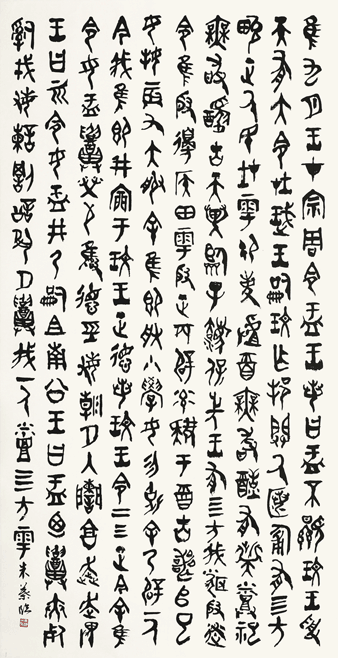 隹九月王才宗周令盂王若曰盂不顯玟王受
天有大令在珷王嗣玟乍邦闢厥匿匍有四方
畯正厥民在雩御事虘酉無敢酖有祡蒸祀
無敢醻古天異臨子灋保先王有四方我聞殷述
令隹殷邊侯田雩殷正百辟率肄于酉古喪𠂤已
女妹辰有大服余隹即朕小學女勿克余乃辟一人
今我隹即井禀于玟王正德若玟王令二三正今余隹
令女盂召榮敬雍德經敏朝夕入諫享奔走畏
王曰而令女盂井乃嗣且南公王曰盂廼召夾死
司戎敏諫罰訟夙夕召我一人烝四方雩